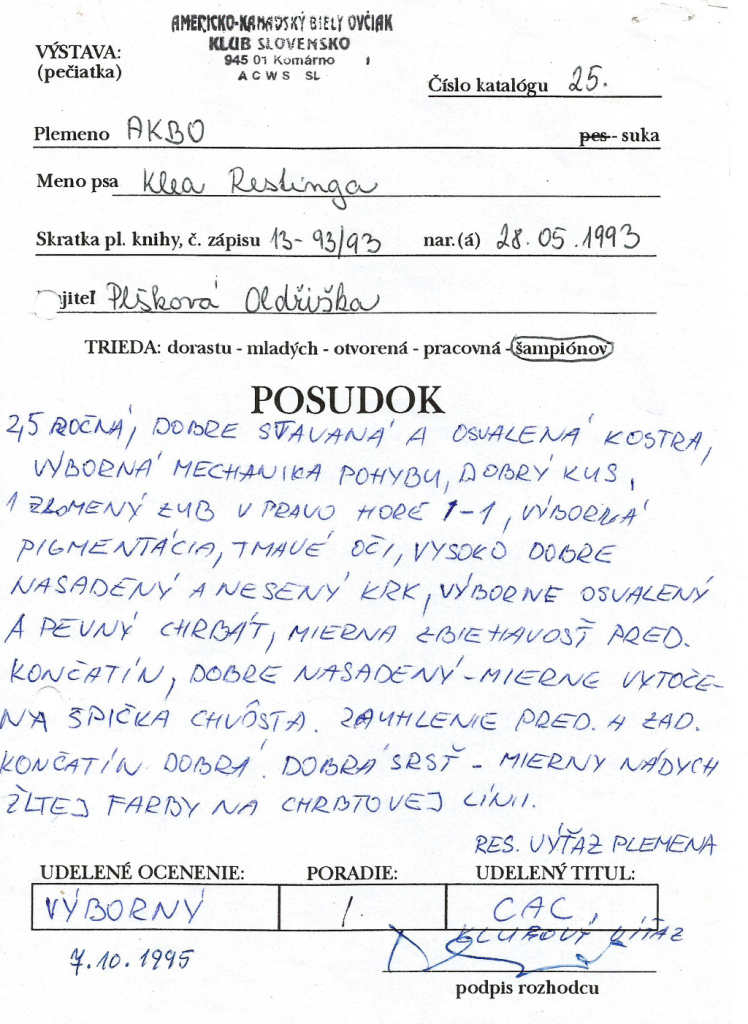 AMERICKO-KANADSKÝ BIELY OVČIAK
KLUB SLOVENSKO
945 01 Komárno 1
ACWS SL
VÝSTAVA:
(pečiatka)
Číslo katalógu 25.
Plemeno AKBO pes - suka
Meno psa Klea Restinga
Skratka pl. knihy, č. zápisu 13-93/93 nar.(á) 28.05.1993
jiteľ Plšková Oldřiška
TRIEDA: dorastu - mladých - otvorená - pracovná - šampiónov
POSUDOK
2,5 ROČNÁ, DOBRE STAVANÁ A OSVALENÁ KOSTRA,
VÝBORNÁ MECHANIKA POHYBU, DOBRÝ KUS,
1 ZLOMENÝ ZUB V PRAVO HORE 1-1, VÝBORNÁ
PIGMENTÁCIA, TMAVÉ OČI, VYSOKO DOBRE
NASADENÝ A NESENÝ KRK, VÝBORNE OSVALENÝ
A PEVNÝ CHRBÁT, MIERNA ZBIEHAVOSŤ PRED.
KONČATÍN, DOBRE NASADENÝ - MIERNE VYTOČE-
NA ŠPIČKA CHVOSTA. ZAUHLENIE PRED. A ZAD.
KONČATÍN DOBRÁ. DOBRÁ SRSŤ - MIERNY NÁDYCH
ŽLTEJ FARBY NA CHRBTOVEJ LÍNII.
RES. VÝŤAZ PLEMENA
UDELENÉ OCENENIE: PORADIE: UDELENÝ TITUL:
VÝBORNÝ 1. CAC,
KLUBOVÝ VÍŤAZ
7.10.1995
podpis rozhodcu